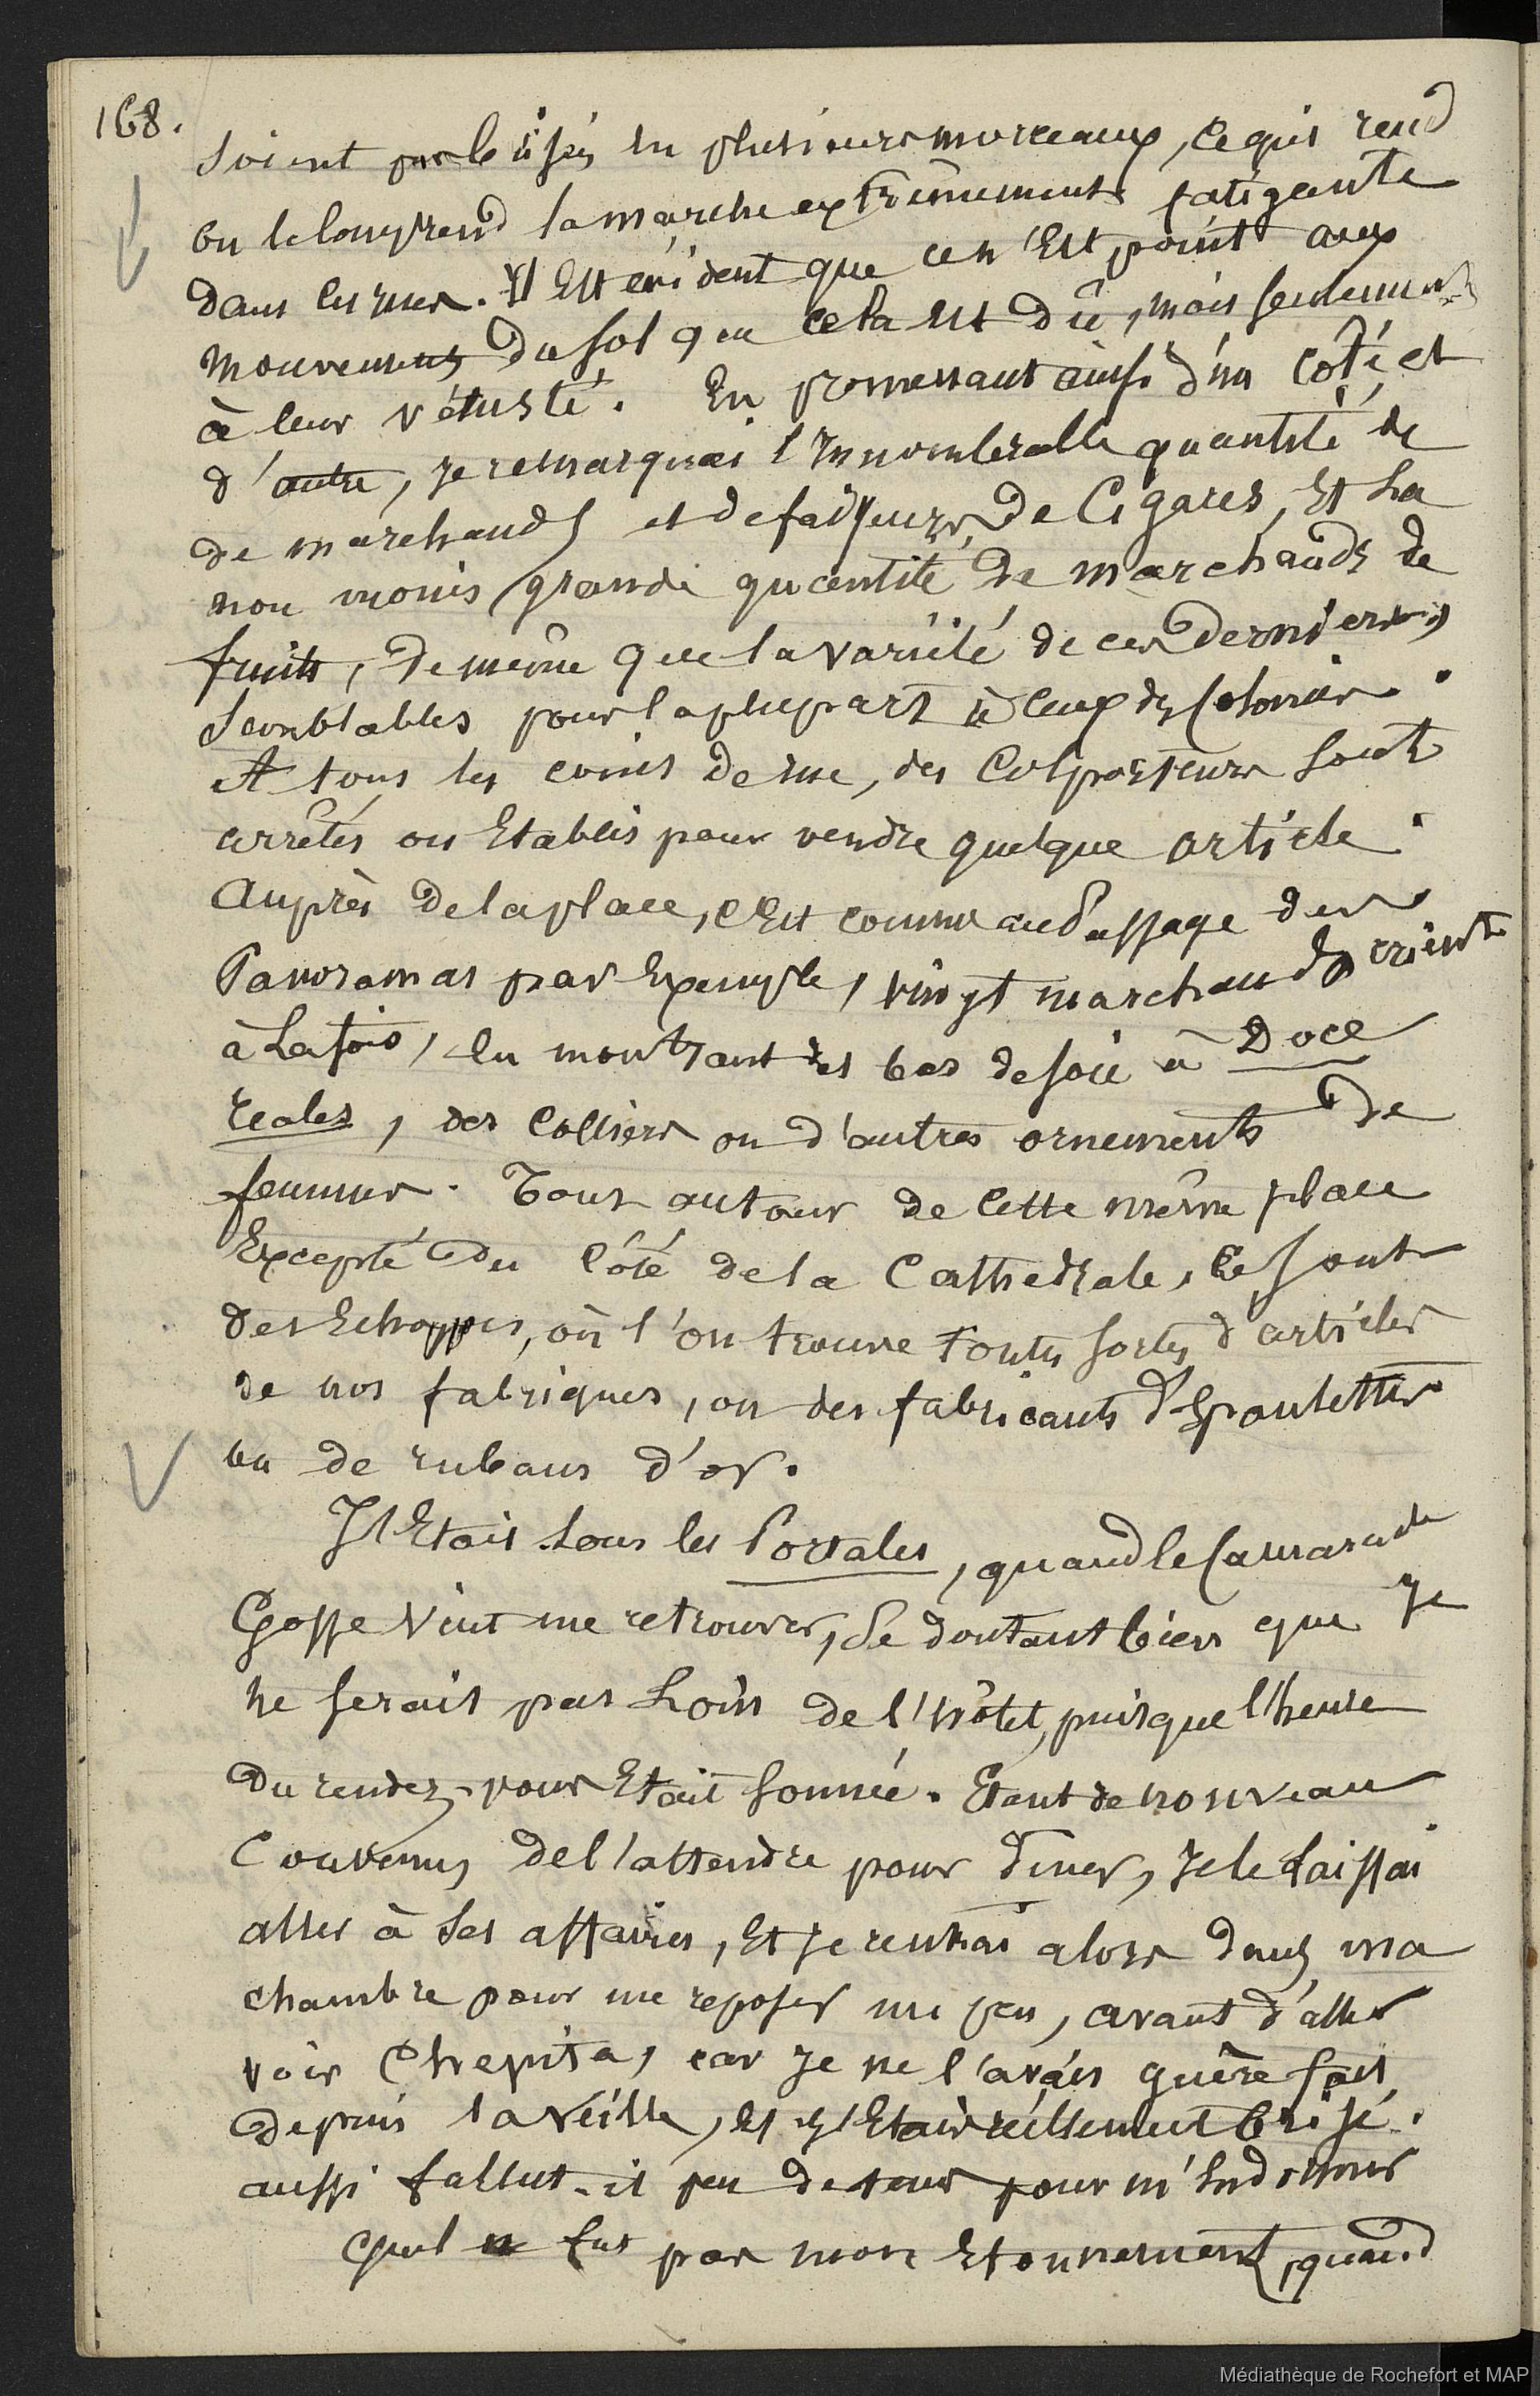 168.
soient brisés en plusieurs morceaux, ce qui rend
en le long rend la marche extrêmement fatigante
dans les rues. Il Est évident que ce n'Est point aux
mouvements du sol que cela est dû, mais seulement
à leur vétusté. En promenant ainsi d'un côté, et
d'autre, je remarquai l'Innombrable quantité de
de marchands et de faiseurs de Cigares, Et la
non moins grande quantité de marchands de
fruits, de même que la variété de ces derniers,
semblables pour la plupart à ceux des Colonies.
A tous les coins de rue, des Colporteurs sont
arrêtés ou Etablis pour vendre quelque article.
Auprès de la place, c'Est comme au Passage des
Panoramas par Exemple, vingt marchands crient
à la fois, en montrant des bas de soie à Doce
reales, des Colliers ou d'autres ornements de
femmes. Tout autour de cette même place
Excepté du Côté de la Cathedrale, ce sont
des Echoppes, où l'on trouve toutes sortes d'articles
de nos fabriques, ou des fabricants d'Epaulettes
ou de rubans d'or.
J'Etais sous les Portales, quand le Camarade
Gosse vint me retrouver, se doutant bien que je
ne serais pas Loin de l'hôtel, puisque l'heure
du rendez-vous Etait sonnée. Etant de nouveau
Convenus de l'attendre pour diner, je le laissai
aller à ses affaires, Et je rentrai alors dans ma
chambre pour me reposer un peu, avant d'aller
voir Chepita, car je ne l'avais guère fait
depuis la veille, et j'Etais réellement brisé.
aussi fallut-il peu de tems pour m'Endormir
Quel n fut pas mon Etonnement, quand
Médiathèque de Rochefort et MAP